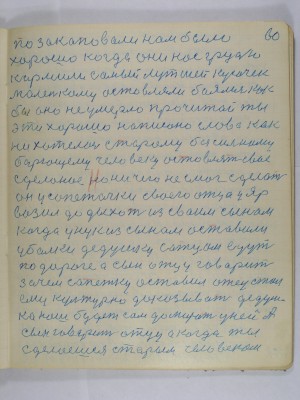 60
позакаповали нам было
хорошо когда они нас грудю
кормили самый лутший кусочек
маленькому оставляли боялис как
бы оно не умерло прочитай ты
эти хорошо написано слова как
ни хотелос старому
человеку оставлят свае
сделаное но ни чего не смог сделат
он у своего отца у яр
вазил до дыхот из сваим сынам
когда унук из сынам оставили
у балки дедушку сатцам едут
по дароге а сын отцу говарит
зачем оставил
ему културно доказыват дедуш-
ка наш будет сам у ней
сын говорит отцу а когда ты
сделаешся старым человеком